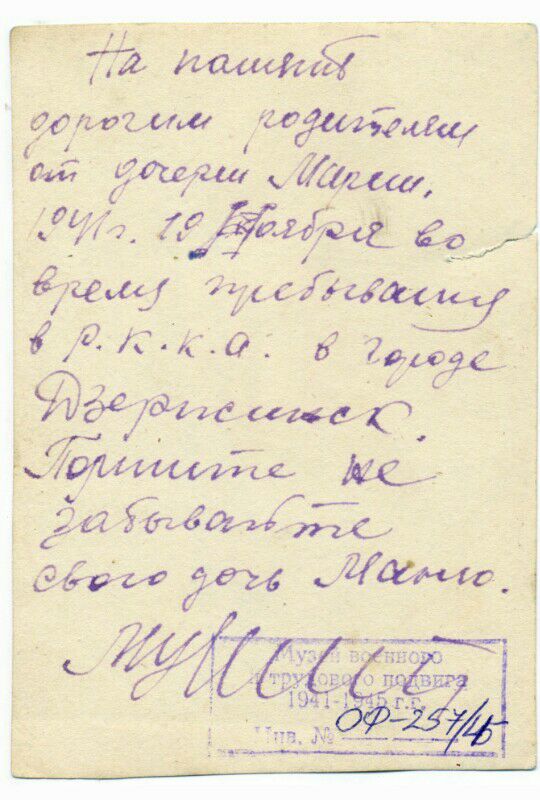 На память
дорогим родителям
от дочери Марии.
1941г. 19 Ноября во
время пребывания
в Р.К.К.А. в городе
Дзержинск.
Помните не
забывайте
свого дочь Маню.
Музей военного
и трудового подвига
1941-1945 г.г.
Инв. № ОФ-257/45